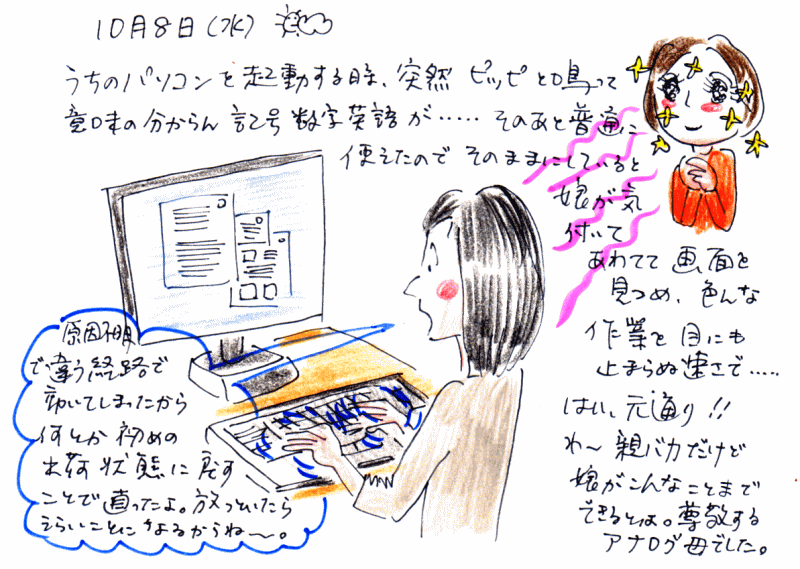 10月8日(水)
うちのパソコンを起動する時、突然 ピッピと鳴って
意味の分からん 記号 数字英語が…… そのあと普通に
使えたので そのままにしていると
娘が気
付いて
あわてて 画面を
見つめ、色んな
作業を 目にも
止まらぬ速さで.....
はい、元通り!!
わ〜 親バカだけど
娘がこんなことまで
できるとは。尊敬する
アナログ母でした。
原因不明
で違う経路で
動いてしまったから
何とか 初めの
出荷状態に戻す
ことで直ったよ。放っといたら
えらいことになるからね〜。